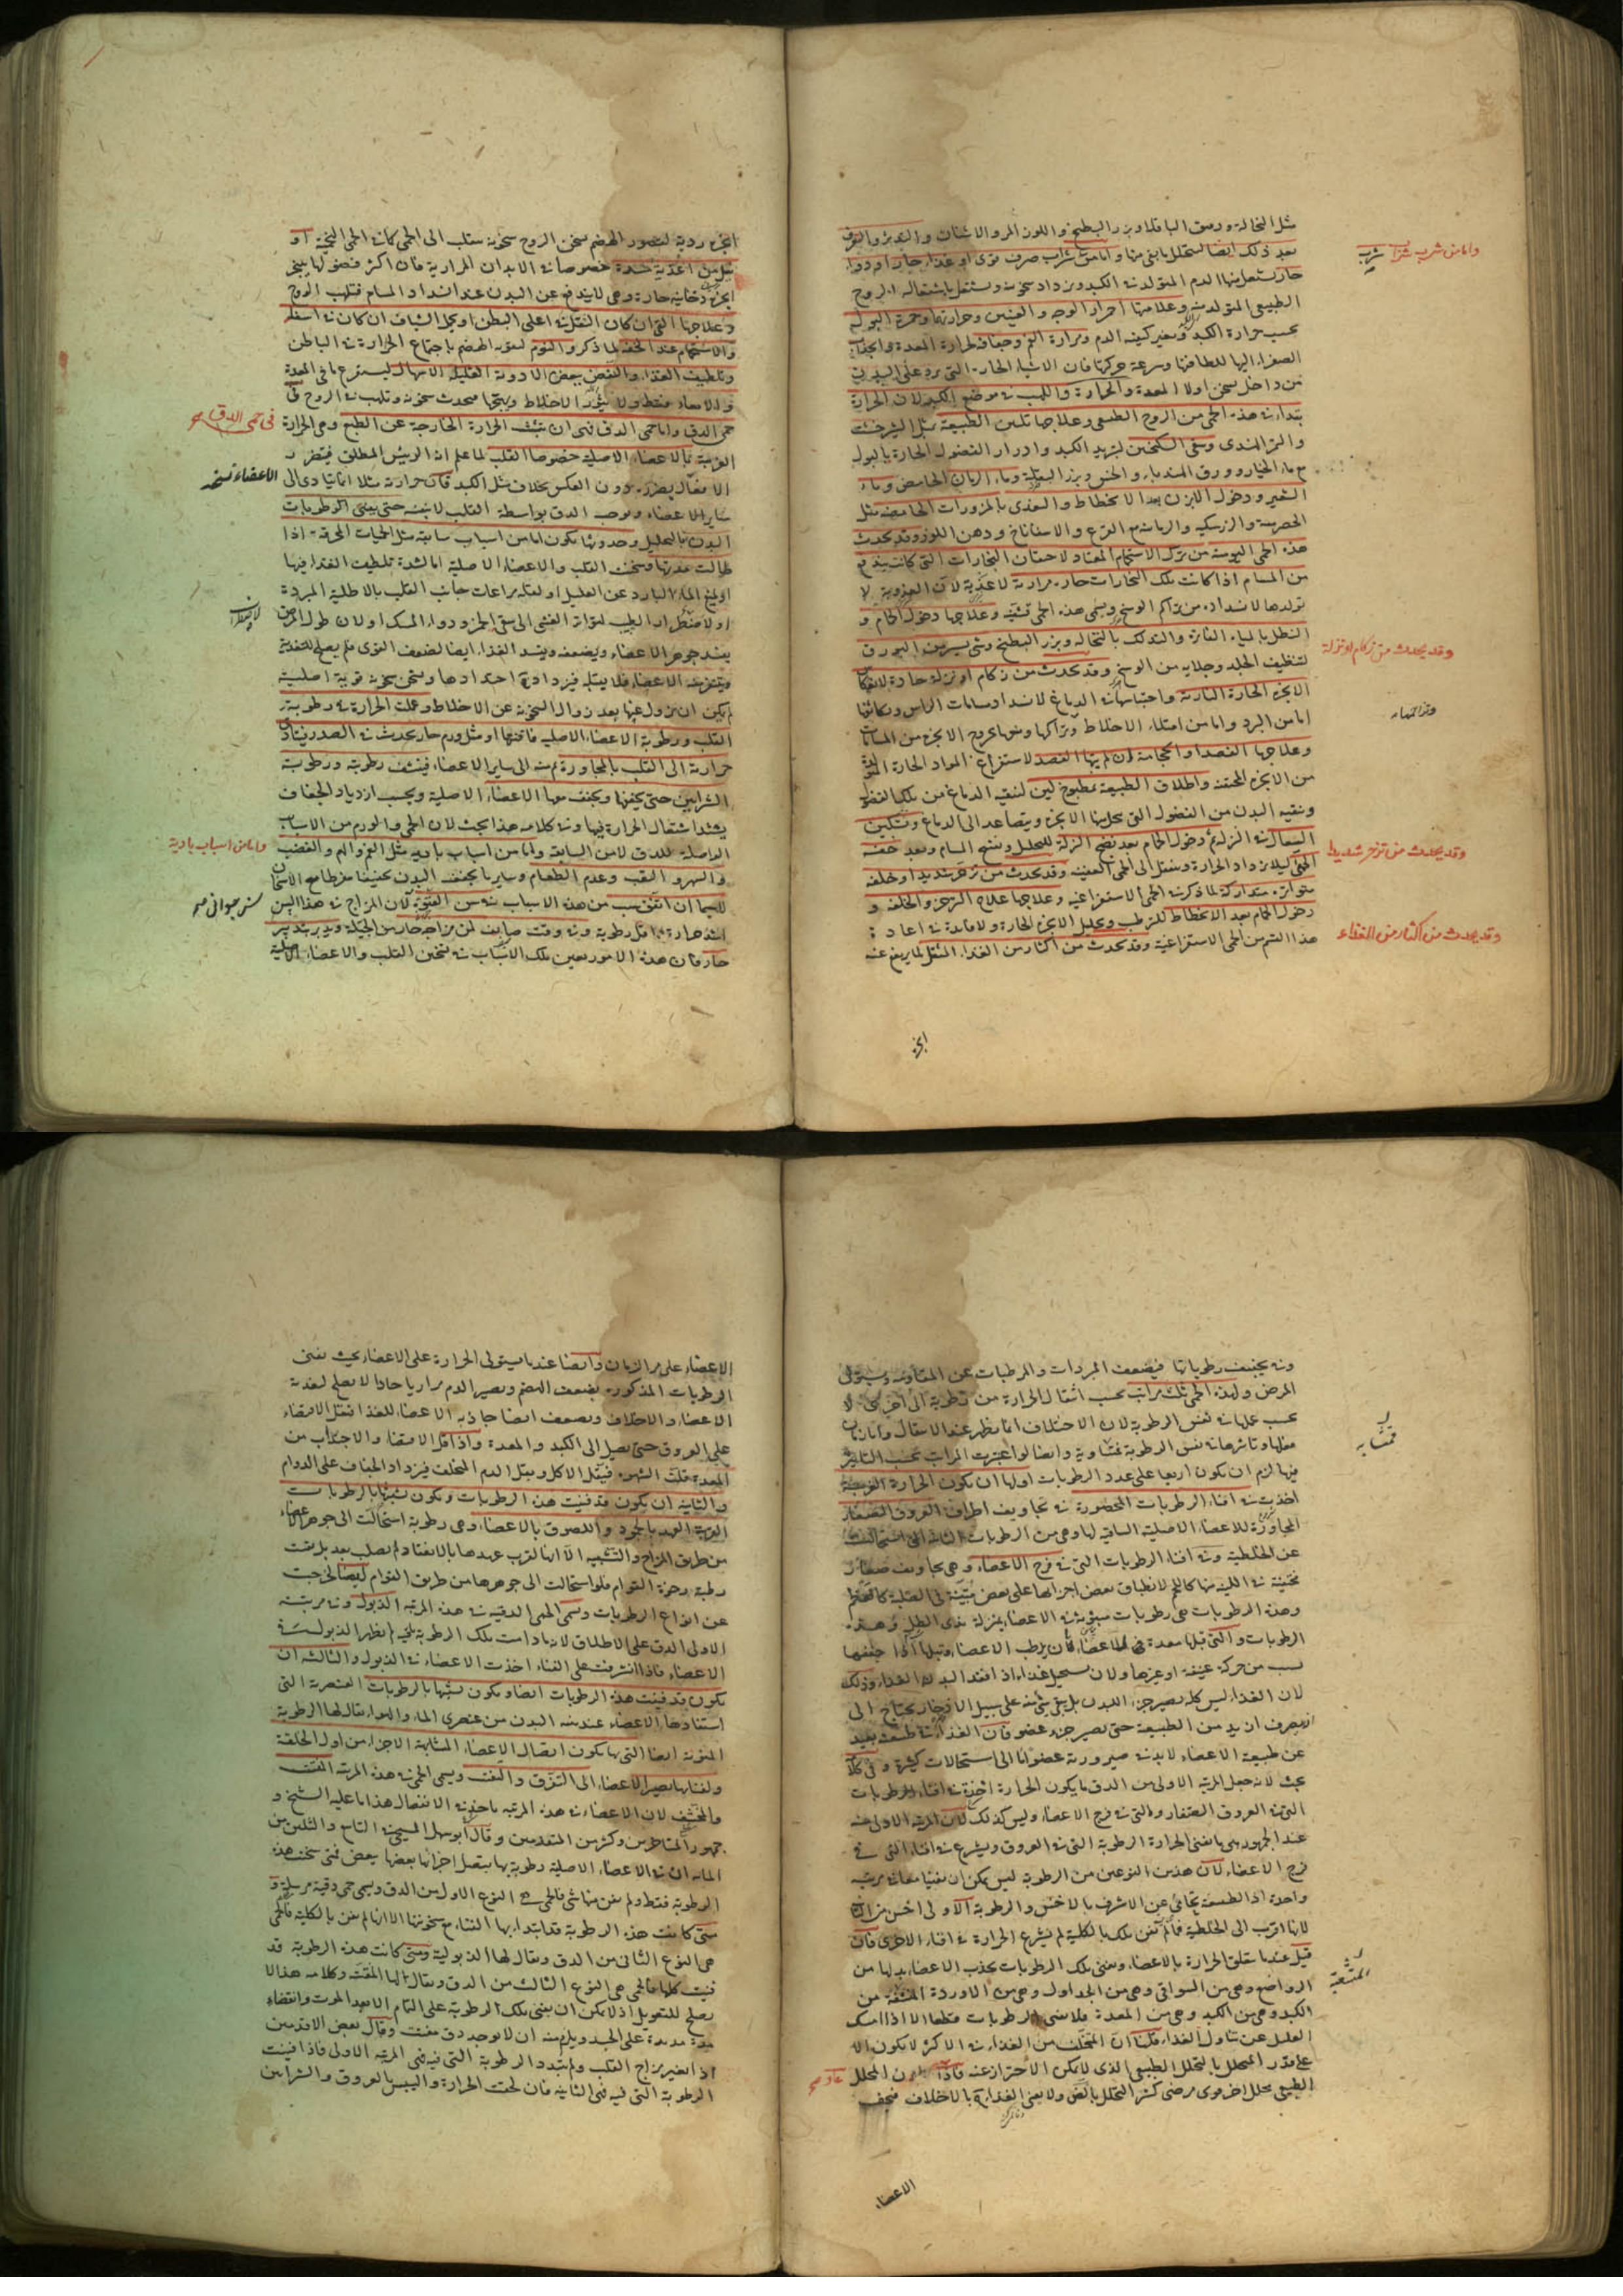 مثل النخالة ودقيق الباقلا وبزر البطيخ واللوز المر والاشنان
بعد ذلك ايضا لتحلل ما بقى منها واما من شراب صرف قوى او غذاء حار او دواء
حار يشتعل منها الدم المتولد فى الكبد ويزداد سخونة ويشتعل باشتعاله الروح
الطبيعى المتولد منه وعلامتها احمرار الوجه والعينين وحرارتها وحمرة البول
بحسب حرارة الكبد وتغير كيفية الدم ومرارة الفم وجفافه لحرارة المعدة وانجذاب
الصفراء اليها للطافتها وسرعة حركتها فان الاشياء الحارة التى ترد على البدن
من داخل تسخن اولا المعدة والحرارة واللهب فى موضع الكبد لان الحرارة
تبتداء فى هذه الحمى من الروح الطبيعى وعلاجها تليين الطبيعة بمثل الشيرخشت
والتمر الهندى وسقى السكنجبين لتبريد الكبد وادرار الفضول الحارة بالبول
مع ماء الخيار وورق الهندباء والخس وبزر البقلة وماء الرمان الحامض وماء
الشعير ودخول الابزن بعد الانحطاط والتغذى بالمزورات الحامضة مثل
الحصرمية والزرشكية والرمانية مع القرع والاسفاناخ ودهن اللوز وقد يحدث
هذه الحمى اليومية من ترك الاستحمام المعتاد لاحتقان البخارات التى كانت يندفع
من المسام اذا كانت تلك البخارات حارة مرارية لا عذبة لان العذوبة لا
تولدها لانسداده من تراكم الوسخ ويسمى هذه الحمى قشفية وعلاجها دخول الحمام و
التنطل بالمياه الفاترة والتدلك بالنخالة وبزر البطيخ وشىء يسير من البورق
لتنظيف الجلد وجلائه من الوسخ وقد يحدث من زكام او نزلة حادة لانعكاس
الابخرة الحارة النارية واحتباسها فى الدماغ لانسداد مسامات الراس وتكاثفها
اما من البرد واما من امتلاء الاخلاط وتراكمها ومنعها لخروج الابخرة من المسامات
وعلاجها الفصد او الحجامة ان لم يتهيا الفصد لاستفراغ المواد الحارة المتولدة
من الابخرة المحتقنة واطلاق الطبيعة بمطبوخ لين لتنقية الدماغ من تلك الفضول
وتنقية البدن من الفضول التى تتحلل منها الابخرة ويتصاعد الى الدماغ وتسكين
السعال فى النزلة ودخول الحمام بعد نضج النزلة للتحليل وتفتيح المسام وبعد خفة
الحمى ليلا يزداد الحرارة وينتقل الى الحمى العفنية وقد يحدث من تزحر شديد او خلفة
متواترة متداركة لما ذكر فى الحمى الاستفراغية وعلاجها علاج الزحير والخلفة و
دخول الحمام بعد الانحطاط للترطيب وتحليل الابخرة الحارة ولا فائدة فى اعادة
هذا القسم من الحمى الاستفراغية وقد يحدث من اكثار من الغذاء الثقيل لما يرتفع عنه
واما من شرب شراب
وقد يحدث من زكام او نزلة
وقد يحدث من تزحر شديد
وقد يحدث من اكثار من الغذاء
ابخرة
ابخرة ردية لقصور الهضم يسخن الروح سخونة ينقلب الى الحمى كما فى الحمى التخمية او
قبل من اغذية حارة خصوصا فى الابدان المرارية فان اكثر فضولها يبقى
ابخرة دخانية حارة وهى لا يندفع عن البدن عند انسداد المسام فتلهب الروح
وعلاجها القى ان كان الثقل فى اعلى البطن او تحمل الشياف ان كان فى اسفله
والاستحمام عند الخفة لما ذكر والنوم لتقوية الهضم باجتماع الحرارة فى الباطن
وتلطيف الغذاء والنفض ببعض الادوية القليلة الاسهال ليستفرغ ما فى المعدة
والامعاء فقط ولا يثور الاخلاط ويهيجها فيحدث سخونة وتلهب فى الروح فى
حمى الدق واما حمى الدق فهى ان يتشبث الحرارة الخارجة عن الطبع وهى الحرارة
الغريبة بالاعضاء الاصلية خصوصا القلب لما علم انه الرئيس المطلق فيتضرر
الافعال بضرره دون العكس بخلاف مثل الكبد فان حرارته مثلا انما يتادى الى
ساير الاعضاء ويوجب الدق بواسطة القلب لا بنفسه حتى يفنى الرطوبات
البدن بالتحليل وحدوثها يكون اما من اسباب سابقة مثل الحميات المحرقة اذا
طالت مدتها وسخنت القلب والاعضاء الاصلية اما لشدة تلطيف الغذاء فيها
او لمنع الماء البارد عن العليل او لقلة مراعات جانب القلب بالاطلية المبردة
او لاضطرار الطبيب لتواتر الغشى الى سقى الخمر ودواء المسك او لان طول المرض
يفسد جوهر الاعضاء ويضعفه ويفسد الغذاء ايضا لضعف القوى فلم يصلح للتغذية
ويتنفر عنه الاعضاء فلا يقبله فيزداد فى احتدادها ويتمكن سخونة قوية اصلية
لم يكن ان يزول عنها بعد زوال السخونة عن الاخلاط وعملت الحرارة فى رطوبة
القلب ورطوبة الاعضاء الاصلية فافنتها او مثل ورم حار يحدث فى الصدر فيتادى
حرارته الى القلب بالمجاورة ثم منه الى ساير الاعضاء فينشف رطوبته ورطوبة
الشرايين حتى يجففها ويجفف معها الاعضاء الاصلية وبحسب ازدياد الجفاف
يشتد اشتعال الحرارة فيها وفى كلامه هذا بحث لان الحمى والورم من الاسباب
الواصلة للدق لا من السابقة واما من اسباب بادية مثل الغم والهم والغضب
والسهر والتعب وعدم الطعام وساير ما يجفف البدن تجفيفا مفرطا مع الاسخان
لاسيما ان اتفق سبب من هذه الاسباب فى سن الفتوة لان المزاج فى هذا السن
اشد حرارة واقل رطوبة وفى وقت صايف لمن مزاجه حار من الجبلة وتدبر بتدبير
حار فان هذه الامور يعين تلك الاسباب فى تسخين القلب والاعضاء الاصلية
فى حمى الدق
الاعضاء
واما من اسباب بادية
وفى تجفيف رطوباتها فيضعف المبردات والمرطبات عن المقاومة ويستولى
المرض ولهذه الحمى ثلث مراتب بحسب انتقال الحرارة من رطوبة الى اخرى لا
بحسب عملها فى نفس الرطوبة لان الاختلاف انما يظهر عند الانتقال واما زمان
فعلها وتاثيرها فى نفس الرطوبة فمتشابهة وايضا لو اعتبرت المراتب بحسب التاثير
فيها لزم ان يكون اربعا على عدد الرطوبات اولها ان يكون الحرارة الغريبة
اخذت فى افناء الرطوبات المحصورة فى تجاويف اطراف العروق الصغار
المجاورة للاعضاء الاصلية الساقية لها وهى من الرطوبات الثانية التى استحالت
عن الخلطية وفى افناء الرطوبات التى فى فرج الاعضاء وهى تجاويف صغار
وهذه الرطوبات هى رطوبات مبثوثة فى الاعضاء بمنزلة ندى الطل وهذه
الرطوبات والتى قبلها معدة فى الاعضاء لان يرطب الاعضاء وتبلها اذا جففها
سبب من حركة عنيفة او غيرها ولان يستحيل غذاء اذا فقد البدن الغذاء وذلك
لان الغذاء ليس كله يصير جزء البدن بل يبقى شىء منه على سبيل الادخار يحتاج الى
تصرف ازيد من الطبيعة حتى يصير جزء عضو فان الغذاء فى طبيعته بعيد
عن طبيعة الاعضاء لابد فى صيرورته عضوا الى استحالات كثيرة وفى كلامه
بحث لانه جعل المرتبة الاولى من الدق ما يكون الحرارة اخذة فى افناء الرطوبات
التى فى العروق الصغار والتى فى فرج الاعضاء وليس كذلك لان المرتبة الاولى منه
عند الجمهور هى ما تفنى الحرارة الرطوبة التى فى العروق ويشرع فى افناء التى فى
فرج الاعضاء لان هذين النوعين من الرطوبة ليس يمكن ان تفنيا معا فى مرتبة
واحدة اذ الطبيعة تحامى عن الاشرف بالاخس والرطوبة الاولى اخس من الثانية
لانها اقرب الى الخلطية فما لم تفن تلك بالكلية لم يشرع الحرارة فى افناء الاخرى فان
قيل عندما يتعلق الحرارة بالاعضاء ويفنى تلك الرطوبات يجذب الاعضاء بدلها من
الرواضع وهى من السواقى وهى من الجداول وهى من الاوردة المتشعبة من
الكبد وهى من الكبد وهى من المعدة فلا يفنى الرطوبات قطعا الا اذا امسك
العليل عن تناول الغذاء قلنا ان المتخلف من الغذاء فى الاكثر لا يكون الا
على قدر المتحلل بالتحلل الطبيعى الذى لا يمكن الاحتراز عنه فاذا المحلل
الطبيعى محلل اخر قوى مرضى كثر التحلل ولا يفى الغذاء بالاخلاف فيجف
متشابهة
المتشعبة
الاعضاء
الاعضاء على مر الزمان وايضا عندما يستولى الحرارة على الاعضاء بحيث تفنى
الرطوبات المذكورة يضعف الهضم ويصير الدم مراريا حادا لا يصلح لتغذية
الاعضاء والاخلاف ويضعف ايضا جاذبة الاعضاء للغذاء فيقل الاقتضاء
على العروق حتى يصل الى الكبد والمعدة واذا قل الاقتضاء والاجتذاب من
المعدة قلت الشهوة فيقل الاكل ويقل الدم المخلف فيزداد الجفاف على الدوام
والثانية ان يكون قد فنيت هذه الرطوبات ويكون تشبثها بالرطوبات
القريبة العهد بالجمود واللصوق بالاعضاء وهى رطوبة استحالت الى جوهر الاعضاء
من طريق المزاج والتشبيه الا انها لقرب عهدها بالانعقاد لم تصلب بعد بل بقيت
رطبة رخوة القوام فلو استحالت الى جوهرها من طريق القوام ايضا لخرجت
عن انواع الرطوبات ويسمى الحمى الدقية فى هذه المرتبة الذبول وفى مرتبته
الاولى الدق على الاطلاق لانه ما دامت تلك الرطوبة باقية لم يظهر الذبول فى
الاعضاء فاذا اشرفت على الفناء اخذت الاعضاء فى الذبول والثالثة ان
يكون قد فنيت هذه الرطوبات ايضا ويكون تشبثها بالرطوبات العنصرية التى
استفادها الاعضاء عند البدن من عنصرى الماء والهواء يقال لها الرطوبة
المنوية ايضا التى بها يكون اتصال الاعضاء المتشابهة الاجزاء من اول الخلقة
وبفنائها يصير الاعضاء الى التفرق والتفتت ويسمى الحمى فى هذه المرتبة المفتت
والمحشف لان الاعضاء فى هذه المرتبة ياخذ فى الانفصال هذا ما عليه الشيخ و
جمهور المتاخرين وكثير من المتقدمين وقال ابو سهل المسيحى فى التاسع والثلثين من
المائة ان فى الاعضاء الاصلية رطوبة بها يتصل اجزائها بعضها ببعض فمتى سخنت هذه
الرطوبة فقط ولم يفن منها شى فالحمى هى النوع الاول من الدق ويسمى حمى دقية مرسلة و
متى كانت هذه الرطوبة قد ابتدا بها الفناء مع سخونتها الا انها لم يفن بالكلية فالحمى
هى النوع الثانى من الدق ويقال لها الذبولية ومتى كانت هذه الرطوبة قد
فنيت كلها فالحمى هى النوع الثالث من الدق ويقال لها المفتتة وكلامه هذا لا
يصلح للتعويل اذ لا يمكن ان يفنى تلك الرطوبة على التمام الا بعد الموت وانقضاء
مدة مديدة على الجسد ويلزم منه ان لا يوجد دق مفتت وقال بعض الاقدمين
اذا تغير مزاج القلب ولم تتبدد الرطوبة التى فيه فهى المرتبة الاولى فاذا فنيت
الرطوبة التى فيه فهى الثانية فان لحقت الحرارة واليبس بالعروق والشرايين